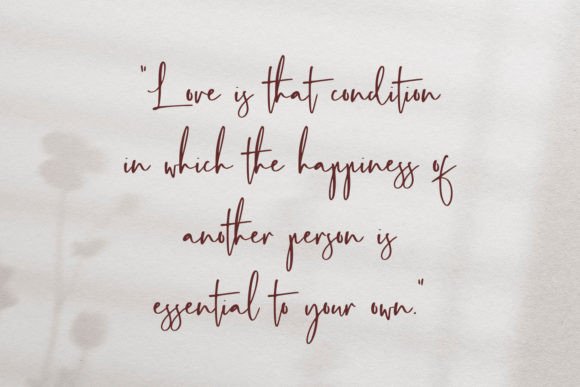 "Love is that condition
in which the happiness of
another person is
essential to your own."